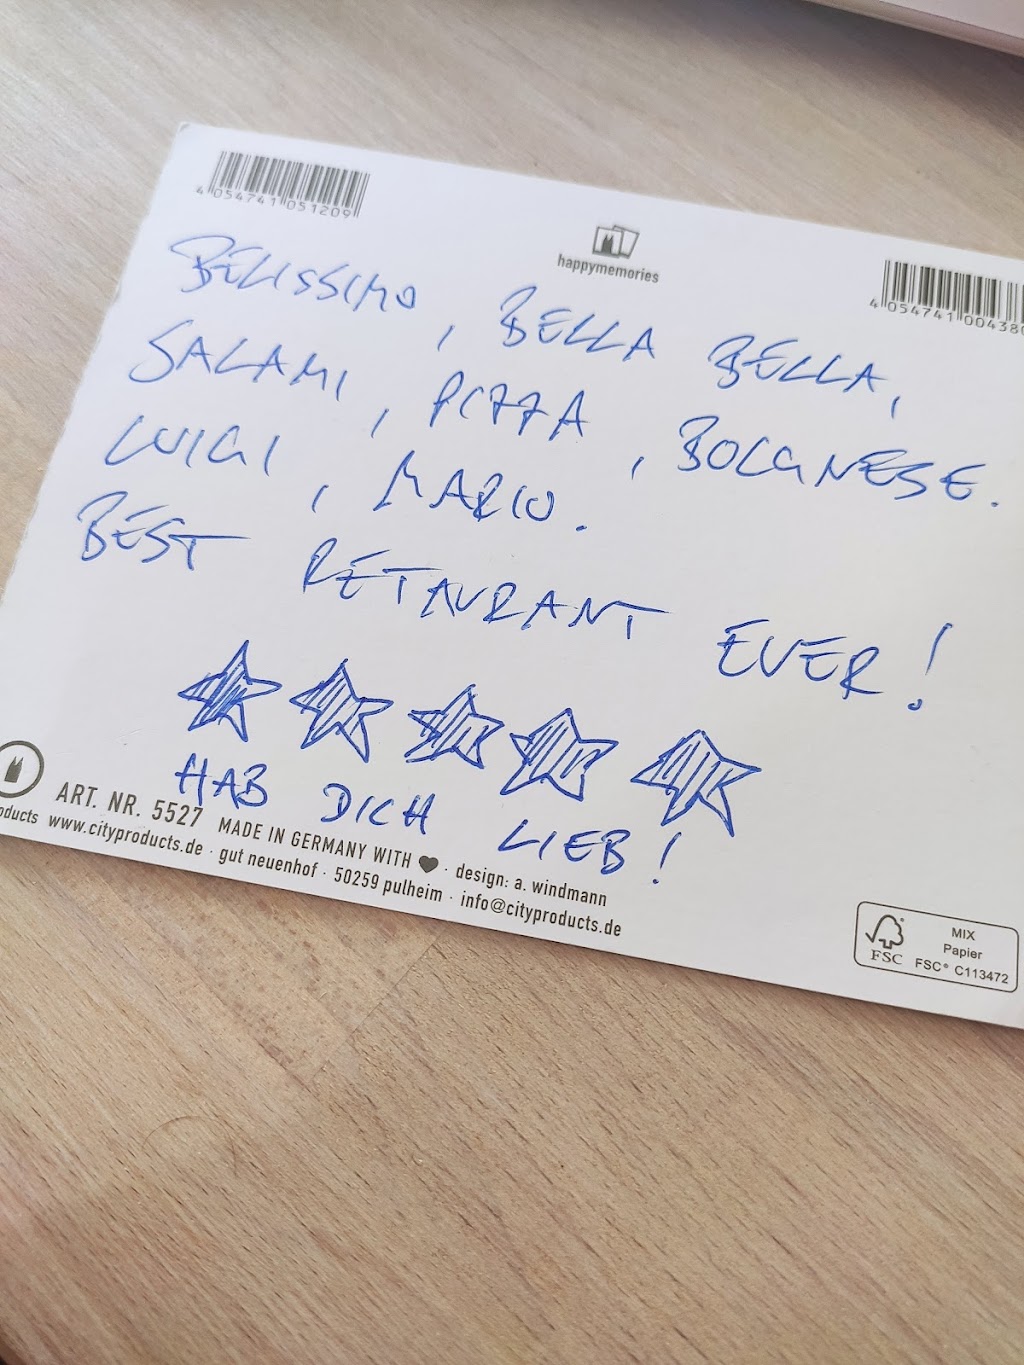 4 054741 051209
happymemories
4 054741 00438
BELISSIMO, BELLA BELLA,
SALAMI, PIZZA, BOLGNESE.
LUIGI, MARIO.
BEST RETAURANT EVER!
HAB DICH LIEB!
ART. NR. 5527 MADE IN GERMANY WITH ♥ · design: a. windmann
oducts www.cityproducts.de · gut neuenhof · 50259 pulheim · info@cityproducts.de
FSC
MIX
Papier
FSC® C113472